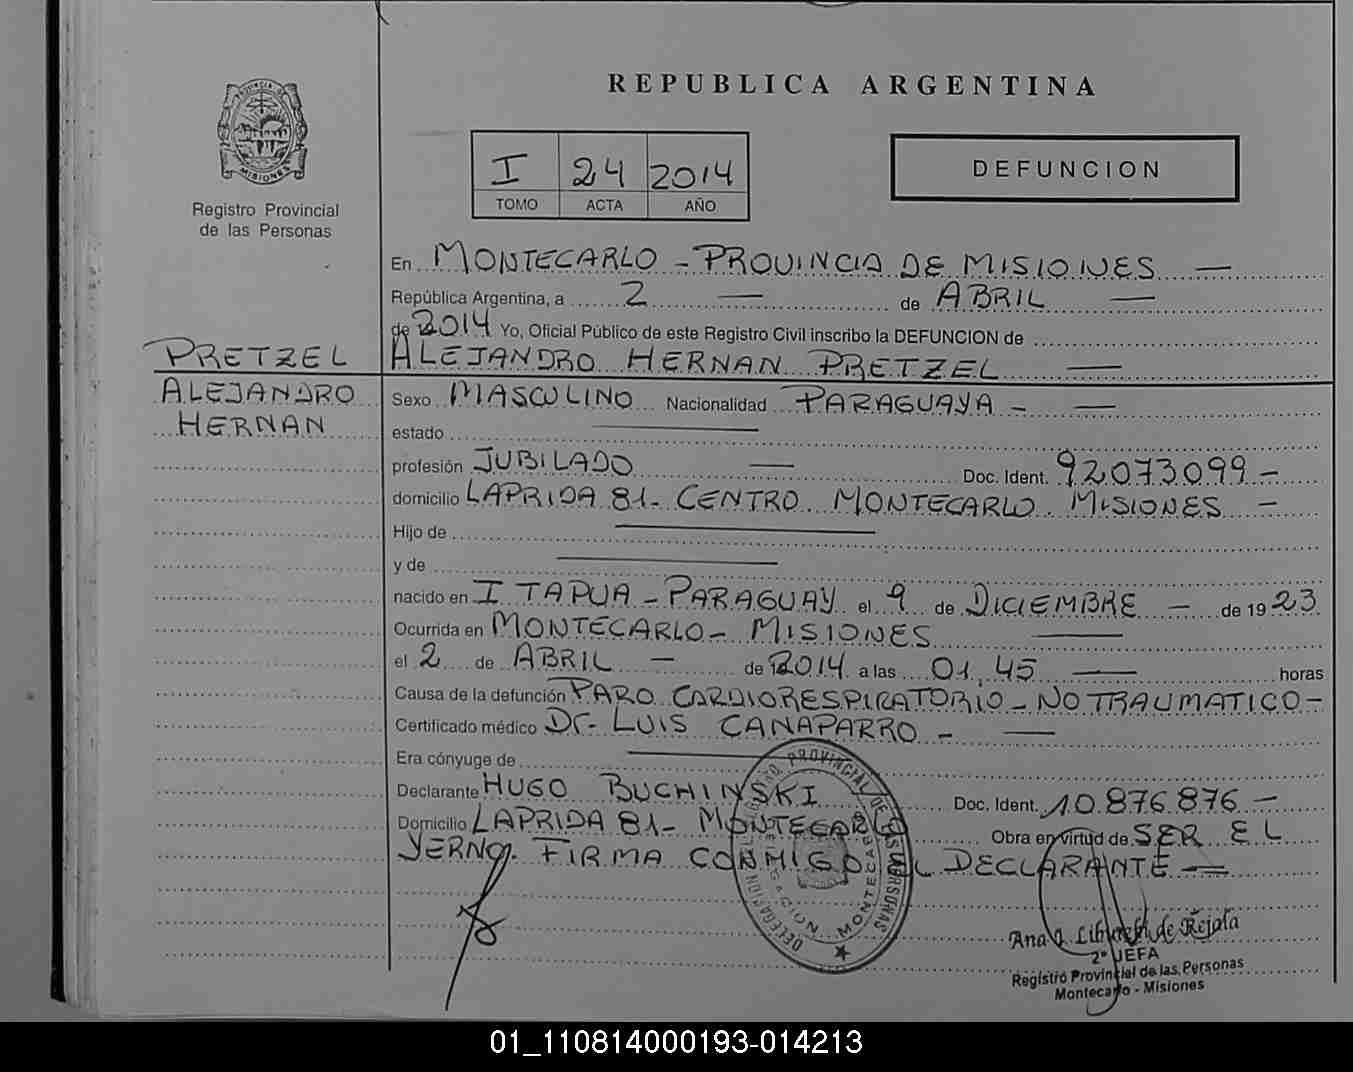 REPUBLICA ARGENTINA
PROVINCIA DE
MISIONES
Registro Provincial
de las Personas
I 24 2014
TOMO ACTA AÑO
DEFUNCION
En MONTECARLO - PROVINCIA DE MISIONES —
República Argentina, a 2 — de ABRIL —
de 2014 Yo, Oficial Público de este Registro Civil inscribo la DEFUNCION de
PRETZEL
ALEJANDRO
HERNAN
ALEJANDRO HERNAN PRETZEL —
Sexo MASCULINO Nacionalidad PARAGUAYA - —
estado —
profesión JUBILADO — Doc. Ident. 92073099 -
domicilio LAPRIDA 81- CENTRO MONTECARLO MISIONES -
Hijo de —
y de —
nacido en ITAPUA - PARAGUAY el 9 de DICIEMBRE - de 1923
Ocurrida en MONTECARLO - MISIONES —
el 2 de ABRIL — de 2014 a las 01,45 — horas
Causa de la defunción PARO CARDIORESPIRATORIO - NO TRAUMATICO -
Certificado médico Dr- LUIS CANAPARRO - —
Era cónyuge de —
Declarante HUGO BUCHINSKI Doc. Ident. 10.876.876 -
Domicilio LAPRIDA 81- MONTECARLO Obra en virtud de SER EL
YERNO. FIRMA CONMIGO EL DECLARANTE —
PROVINCIAL DE LAS PERSONAS
DELEGACION
MONTECARLO
Ana de Rejala
2° JEFA
Registro Provincial de las Personas
Montecarlo - Misiones
01_110814000193-014213